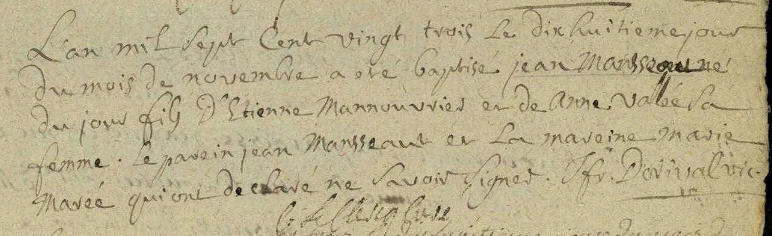 L'an mil sept Cent vingt trois le dix huitieme jour
du mois de novembre a eté baptisé jean Mansseau né
du jour fils D'Etienne Mannouvrier et de Anne Valée Sa
femme. le parein jean Mansseaut et La mareine marie
Marée qui ont declaré ne Savoir signer. ffr. Dorival vic.